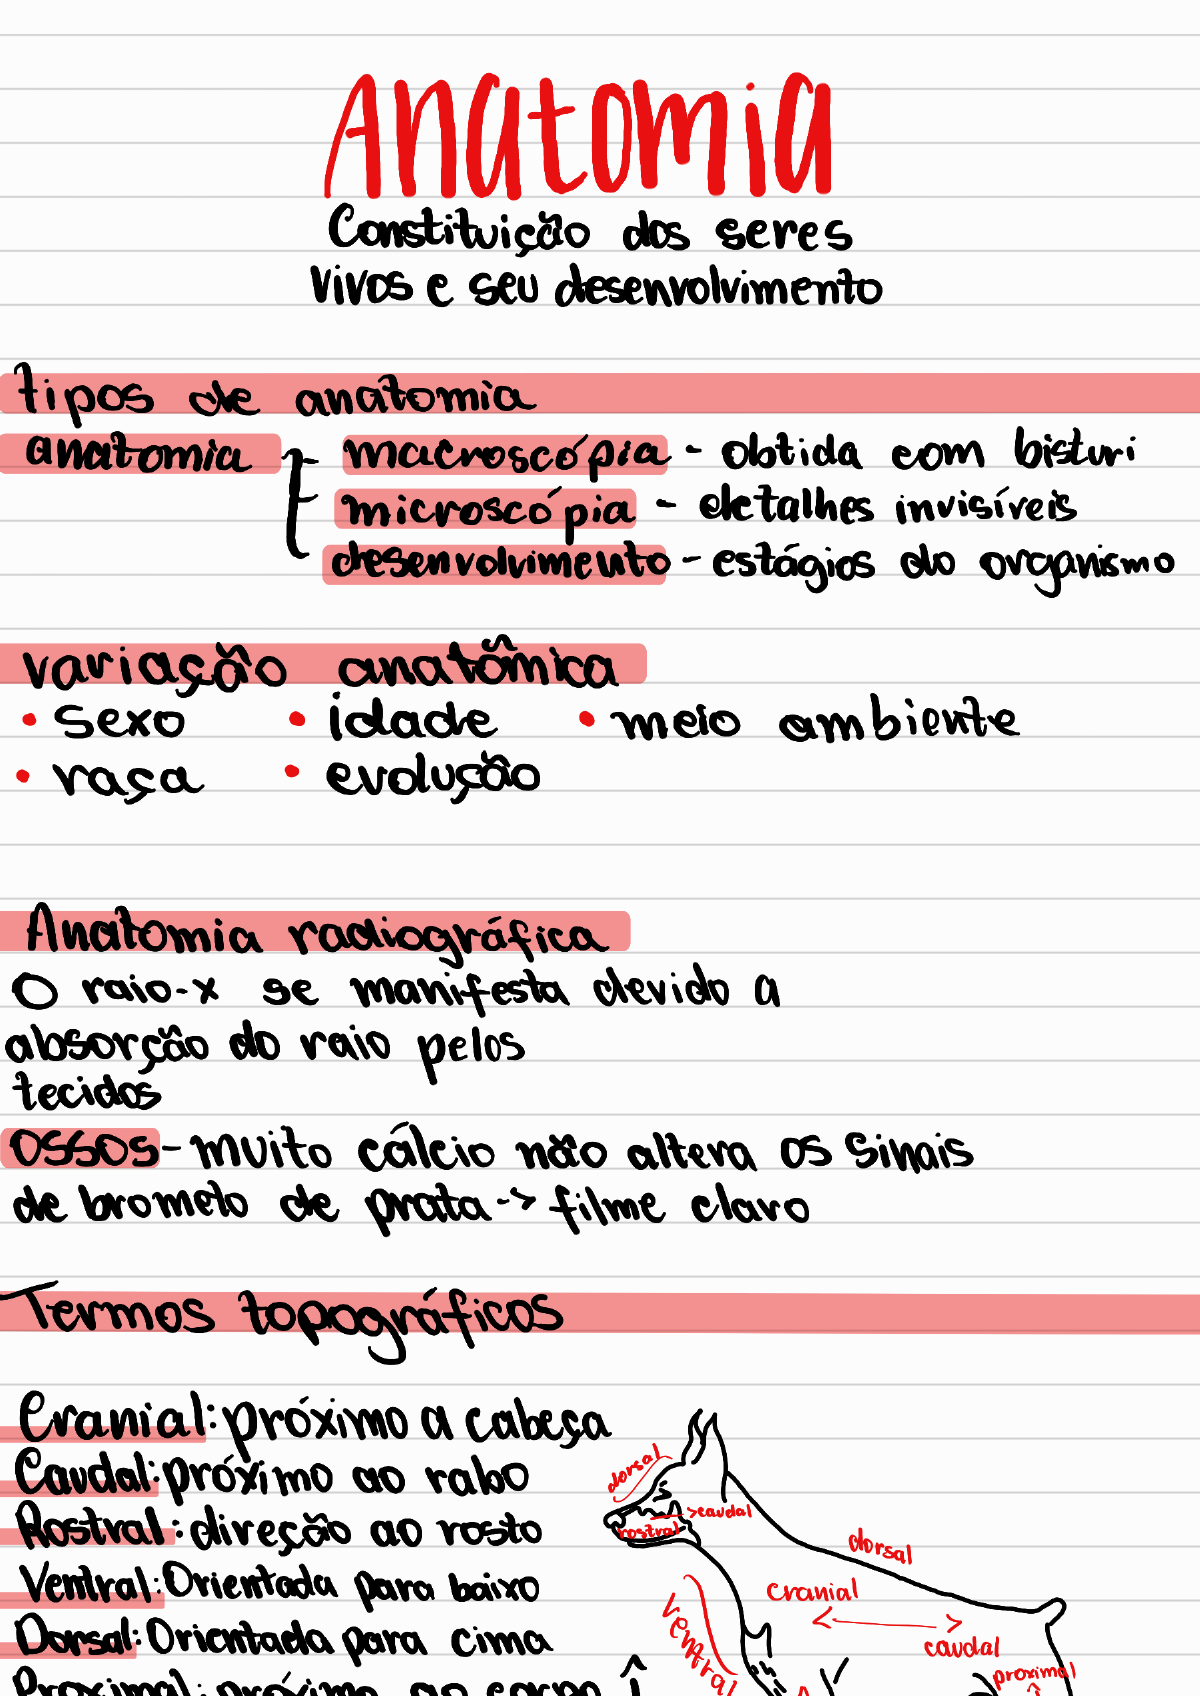 Anatomia
Constituição dos seres
vivos e seu desenvolvimento
tipos de anatomia
anatomia
macroscópia - obtida com bisturi
microscópia - detalhes invisíveis
desenvolvimento - estágios do organismo
variação anatômica
• sexo • idade • meio ambiente
• raça • evolução
Anatomia radiográfica
O raio-x se manifesta devido a
absorção do raio pelos
tecidos
Ossos - muito cálcio não altera os sinais
de brometo de prata -> filme claro
Termos topográficos
Cranial: próximo a cabeça
Caudal: próximo ao rabo
Rostral: direção ao rosto
Ventral: Orientada para baixo
Dorsal: Orientada para cima
Proximal: próximo ao corpo
dorsal
>caudal
rostral
dorsal
cranial
caudal
ventral
proximal